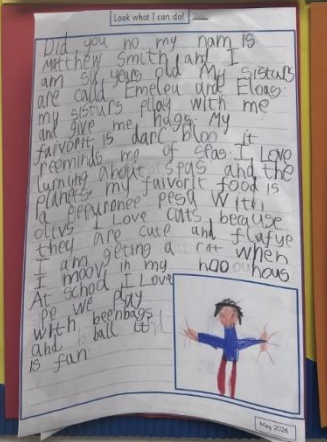 Look what I can do!
Did you no my nam is
Matthew Smith and I
am six years old My sisturs
are calld Emeleu and Eloas.
my sisturs play with me
and give me hugs. My
faivorit is darc bloo it
reeminds me of spas. I Love
lurning about spas and the
planets. my faivorit food is
a pepuronee pesa with
olivs I Love cats because
they are cute and flufye
I am getting a cat when
I moov in my noo hous
At school I Love
pe we play
with beenbags
and ball it
is fun.
May 2026